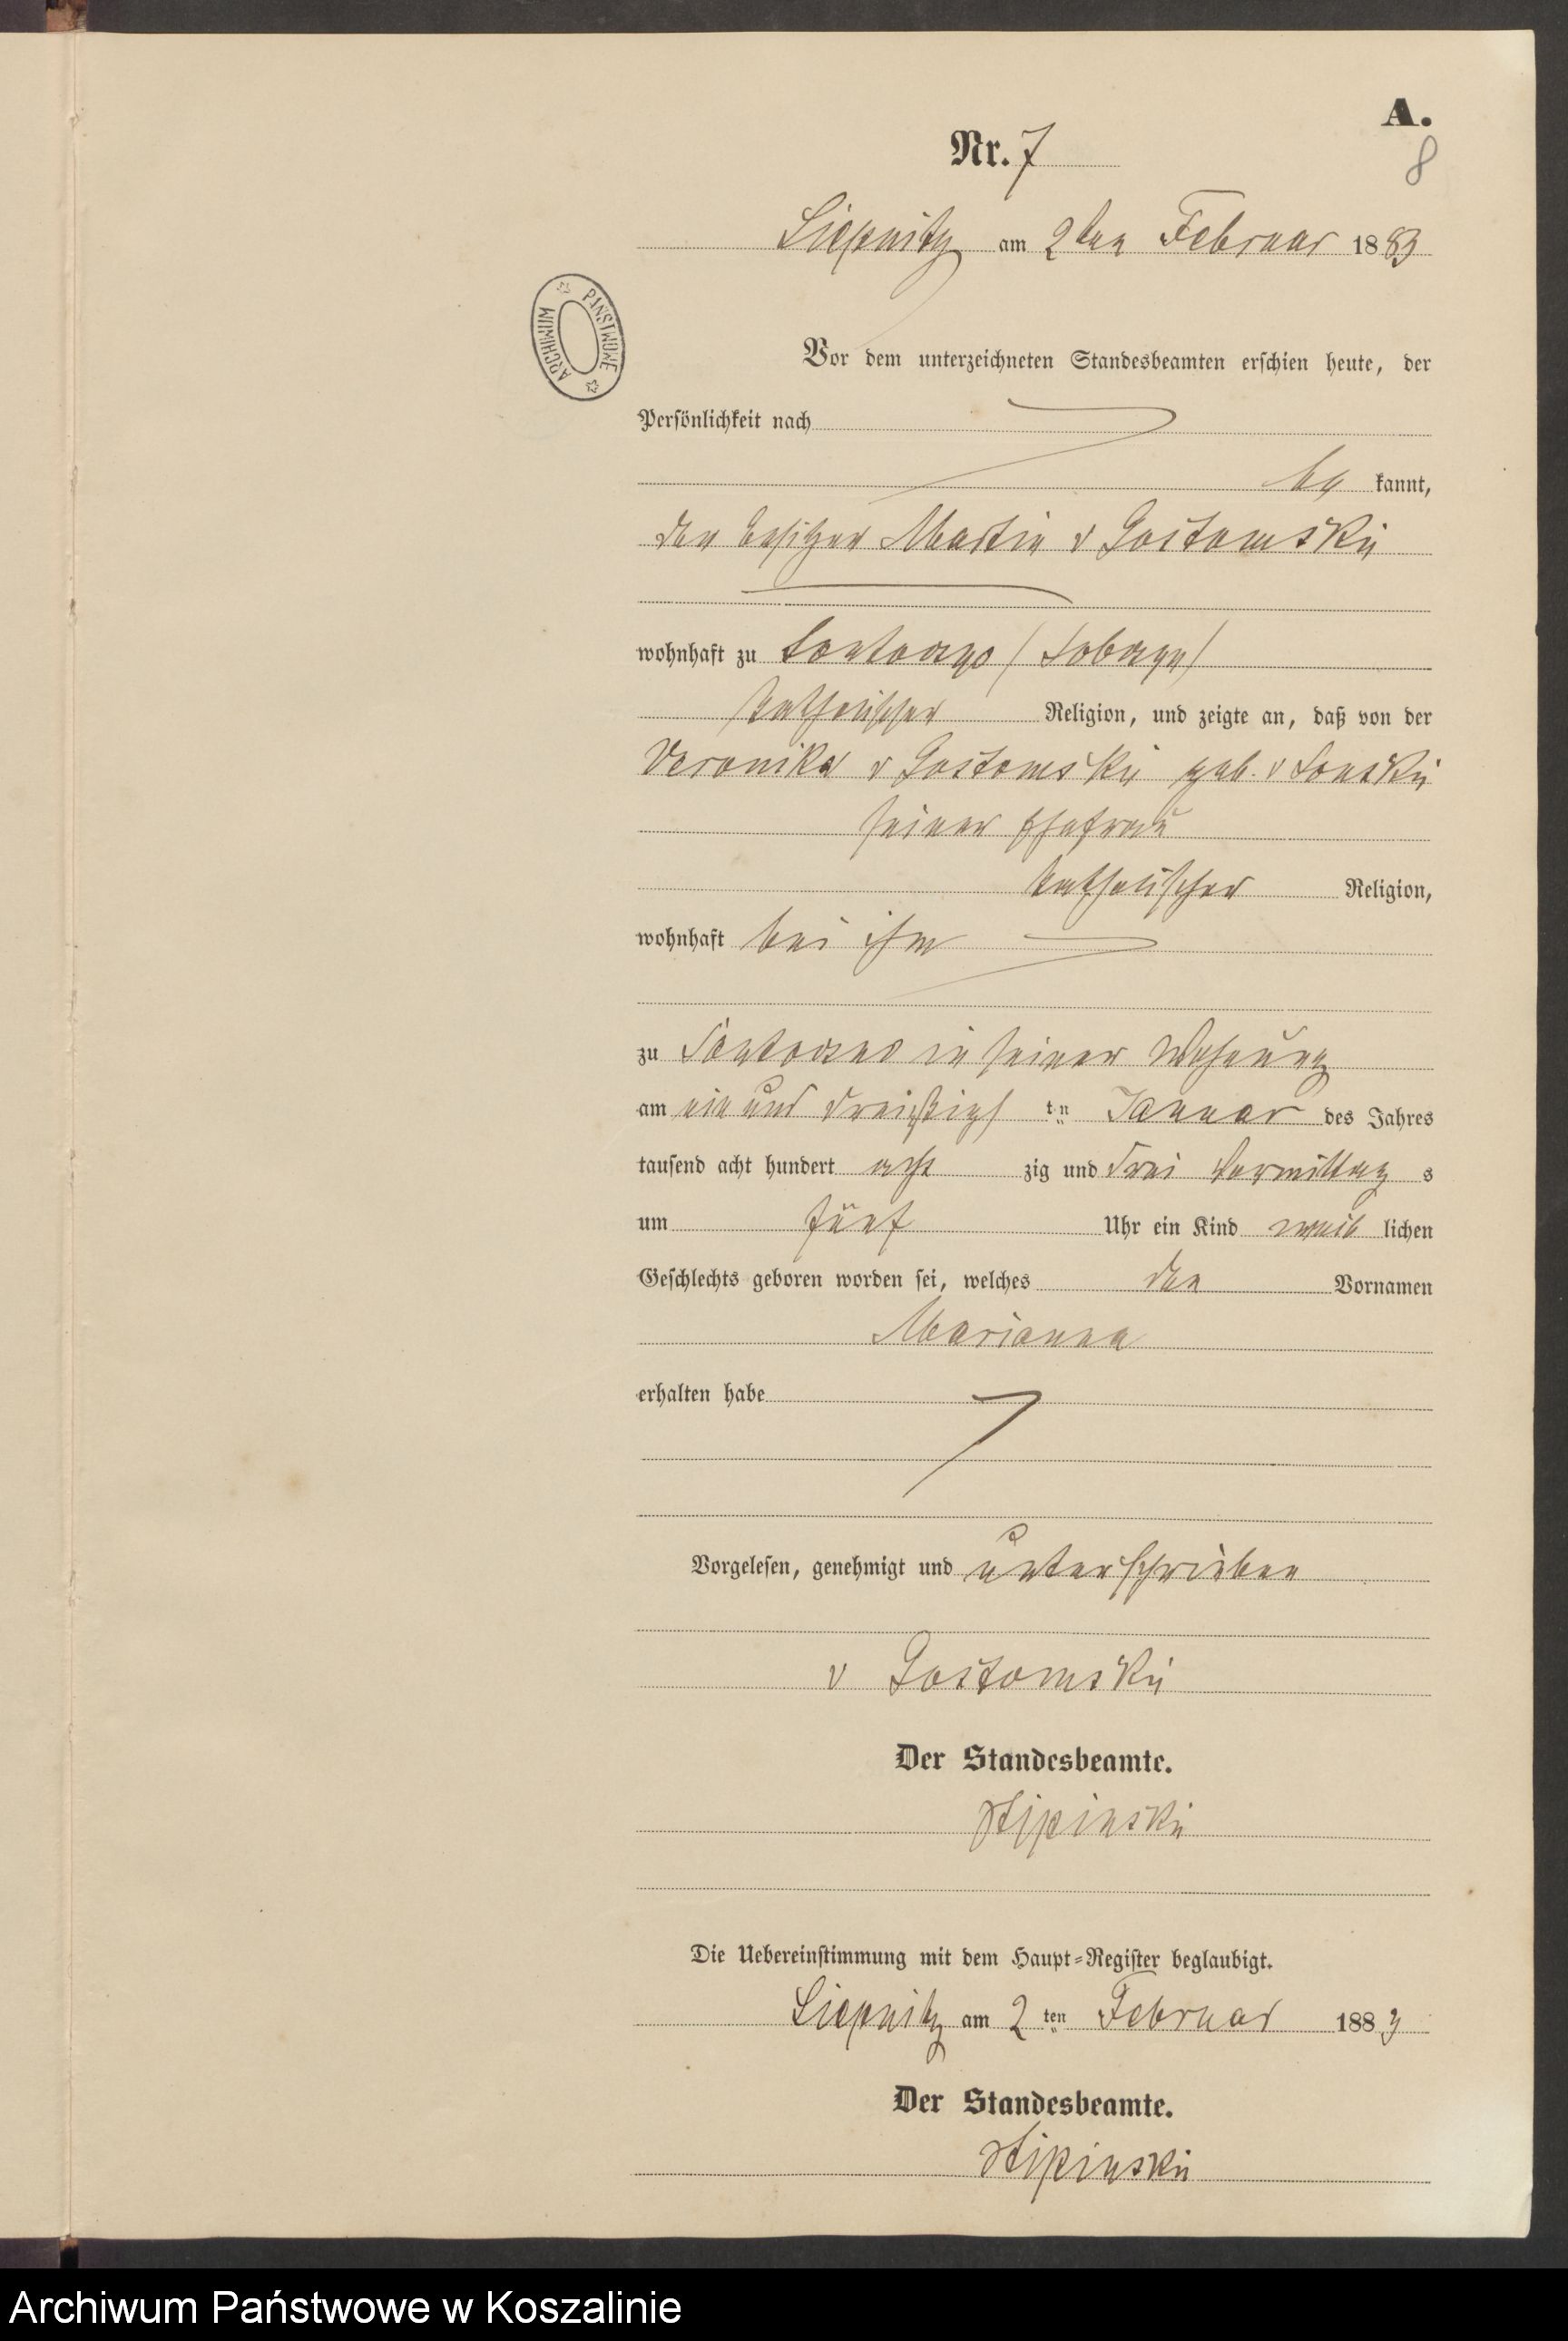 A.
Nr. 7
8
Liepnitz am 2ten Februar 1883
ARCHIWUM PAŃSTWOWE
Vor dem unterzeichneten Standesbeamten erschien heute, der
Persönlichkeit nach
be kannt,
der Besitzer Martin v Gostomski
wohnhaft zu
katholischer Religion, und zeigte an, daß von der
Veronika v Gostomski geb. v Lonski
seiner Ehefrau
katholischer Religion,
wohnhaft bei ihm
zu in seiner Wohnung
am ein und dreißigs ten Januar des Jahres
tausend acht hundert acht zig und drei Vormittag s
um fünf Uhr ein Kind weib lichen
Geschlechts geboren worden sei, welches den Vornamen
Marianna
erhalten habe
Vorgelesen, genehmigt und unterschrieben
v Gostomski
Der Standesbeamte.
Die Uebereinstimmung mit dem Haupt=Register beglaubigt.
Liepnitz am 2 ten Februar 1883
Der Standesbeamte.
Archiwum Państwowe w Koszalinie